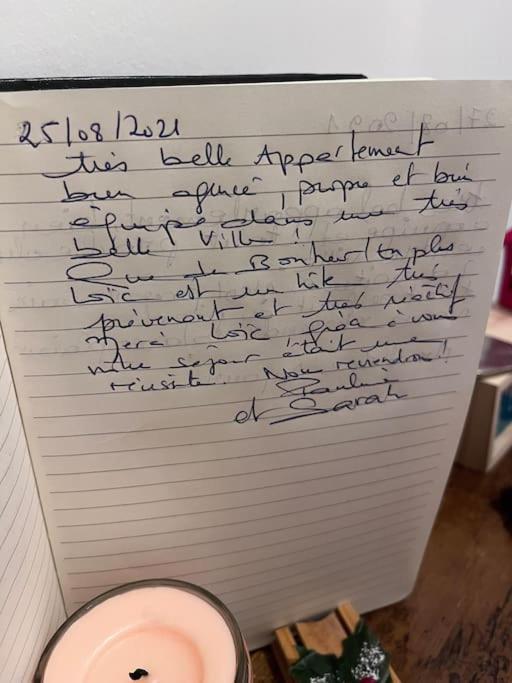 25/08/2021
très belle Appertement
bien agencé, propre et bien
équipé dans une très
belle Ville !
Que de Bonheur ! En plus
Loïc est un hôte très
prévenant et très réactif
Merci Loïc grâce à vous
notre séjour était une
réussite. Nous reviendrons !
Pauline
et Sarah